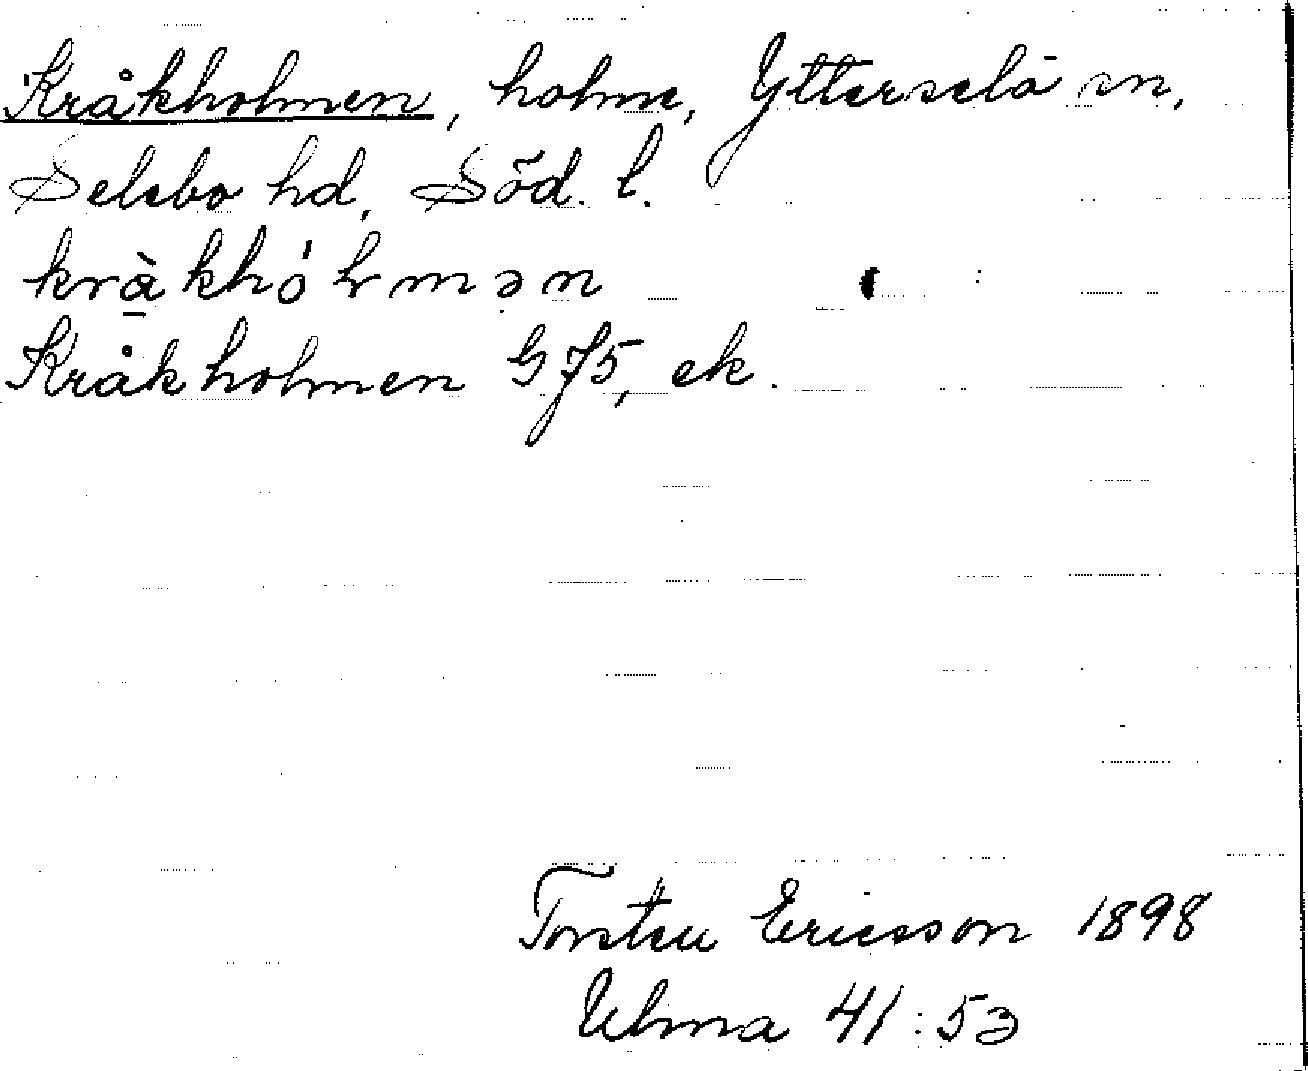 Kråkholmen, holme, Ytterselö sn,
Selebo hd, Söd. l.
Kråkholmen G J5, ek.
Torsten Ericsson 1898
Ulma 41:53